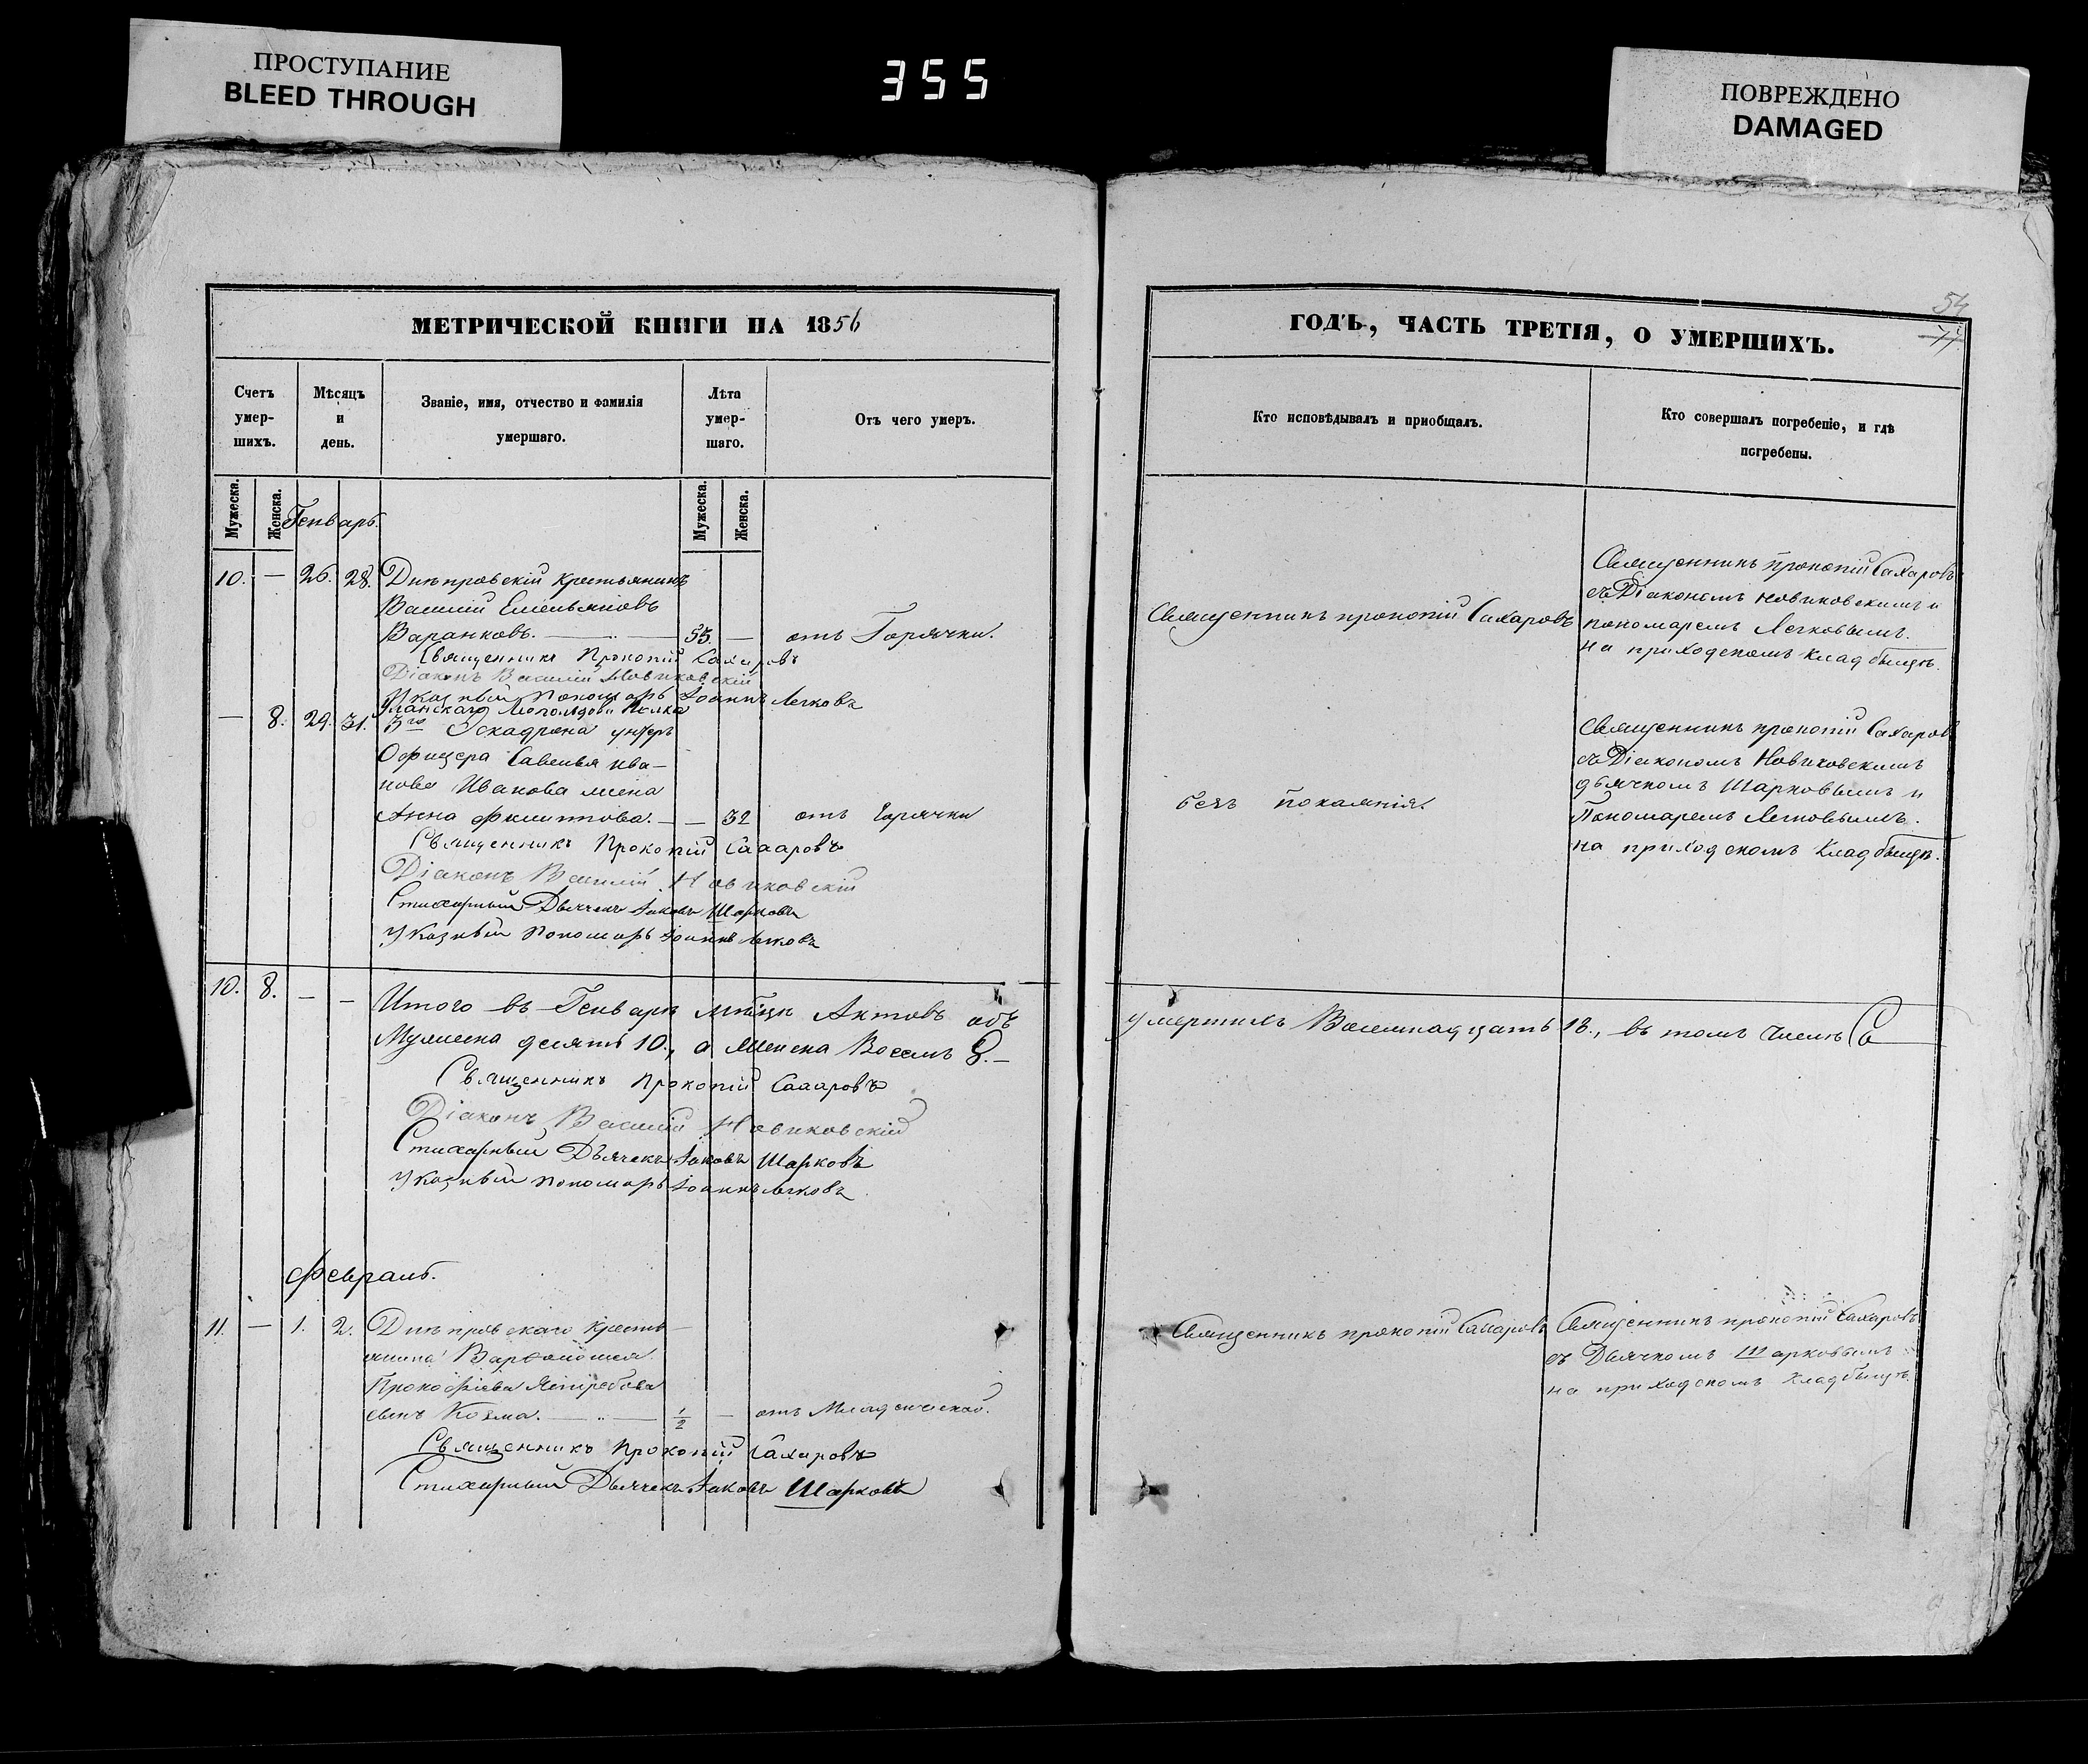 ПРОСТУПАНИЕ
BLEED THROUGH
355
ПОВРЕЖДЕНО
DAMAGED
МЕТРИЧЕСКОЙ КНИГИ НА 1856
Счетъ умер-шихъ.
Мѣсяцъ и день.
Званіе, имя, отчество и фамилія умершаго.
Лѣта умер-шаго.
Отъ чего умеръ.
Мужеска.
Женска.
Генварь.
Мужеска.
Женска.
10. — 26. 28. Днѣпровскій крестьянинъ
Василій Емельяновъ
Варанковъ. — 55. — отъ Горячки.
Священникъ Прокопій Сахаровъ
Діаконъ Василій Новиковскій
Указный Пономарь Іоаннъ Легковъ
Уланскаго Полка
— 8. 29. 31. 3го Эскадрона унтеръ
Офицера Савелья Ива-
нова Иванова жена
Анна Филиппова. — — 32 отъ Горячки
Священникъ Прокопій Сахаровъ
Діаконъ Василій Новиковскій
Стихарный Дьячекъ Іаковъ Шарковъ
Указный Пономарь Іоаннъ Легковъ
10. 8. — — Итого въ Генварѣ мѣсяцѣ Актовъ объ
Мужеска десять 10., а Женска Восемь 8. —
Священникъ Прокопій Сахаровъ
Діаконъ Василій Новиковскій
Стихарный Дьячекъ Іаковъ Шарковъ
Указный Пономарь Іоаннъ Легковъ
Февраль.
11. — 1. 2. Днѣпровскаго кресть-
янина Варфоломея
Прокофіева
сынъ Козма. — 1/2 — отъ Младенческой.
Священникъ Прокопій Сахаровъ
Стихарный Дьячекъ Іаковъ Шарковъ
54
ГОДЪ, ЧАСТЬ ТРЕТІЯ, О УМЕРШИХЪ.
Кто исповѣдывалъ и приобщалъ.
Кто совершалъ погребеніе, и гдѣ погребены.
Священникъ прокопій Сахаровъ
Священникъ прокопій Сахаровъ
съ Діакономъ Новиковскимъ и
пономаремъ Легковымъ.
на приходскомъ кладбищѣ.
безъ покаянія.
Священникъ прокопій Сахаровъ
съ Діакономъ Новиковскимъ
дьячкомъ Шарковымъ и
Пономаремъ Легковымъ.
на приходскомъ Кладбищѣ.
умершихъ Восемнадцать 18., въ томъ числѣ
Священникъ прокопій Сахаровъ
Священникъ прокопій Сахаровъ
съ Дьячкомъ Шарковымъ
на приходскомъ Кладбищѣ.